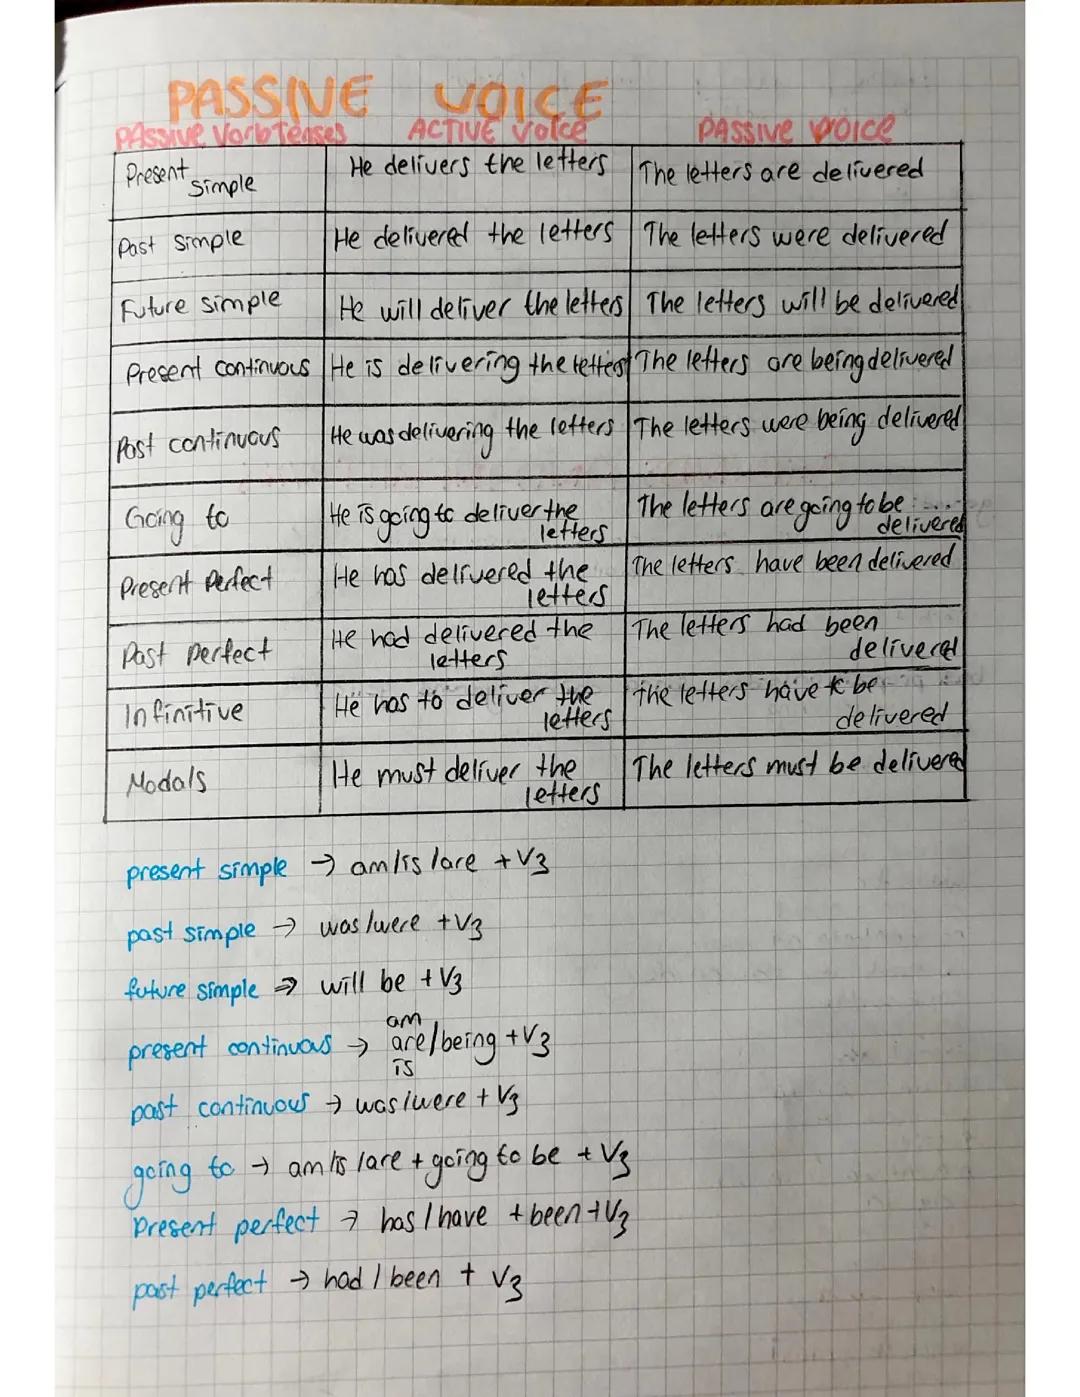 PASSIVE VOICE
PASSIVE Verb Tenses ACTIVE Voice PASSIVE VOICE
Present simple He delivers the letters The letters are delivered
Past simple He delivered the letters The letters were delivered
Future simple He will deliver the letters The letters will be delivered
Present continuous He is delivering the letters The letters are being delivered
Past continuous He was delivering the letters The letters were being delivered
Going to He is going to deliver the The letters are going to be
letters delivered
Present Perfect He has delivered the The letters have been delivered
letters
Past perfect He had delivered the The letters had been
letters delivered
Infinitive He has to deliver the the letters have to be
letters delivered
Modals He must deliver the The letters must be delivered
letters
present simple → am/is/are + V3
past simple → was/were + V3
future simple ⇒ will be + V3
am
present continuous → are/being + V3
is
past continuous → was/were + V3
going to → am/is/are + going to be + V3
Present perfect → has/have + been + V3
past perfect → had/been + V3